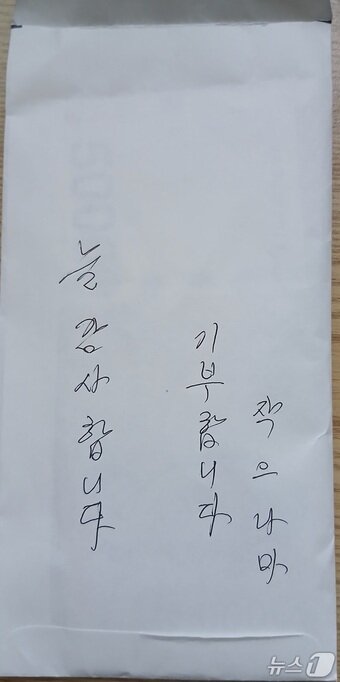 작으나마
기부합니다
늘 감사합니다
뉴스1